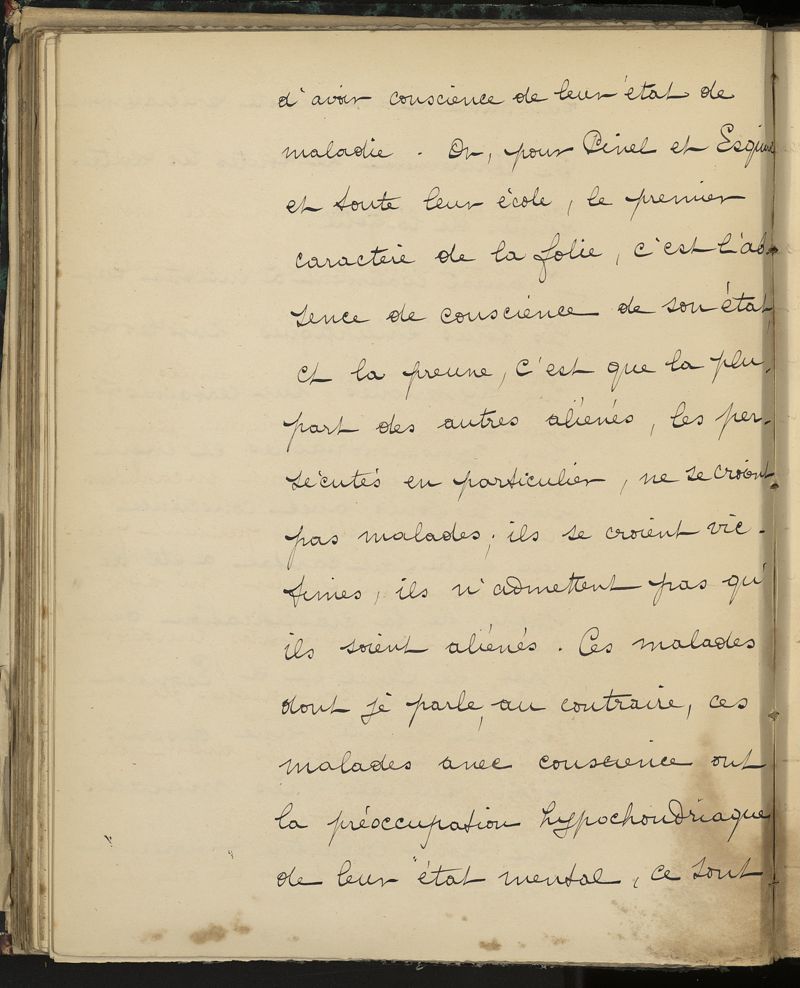 d'avoir conscience de leur état de
maladie. Or, pour Pinel et Esqui
et toute leur école, le premier
caractère de la folie, c'est l'ab-
sence de conscience de son état,
et la preuve, c'est que la plu-
part des autres aliénés, les per-
sécutés en particulier, ne se croient
pas malades; ils se croient vic-
times, ils n'admettent pas qu'
ils soient aliénés. Ces malades
dont je parle, au contraire, ces
malades avec conscience ont
la préoccupation hypochondriaque
de leur état mental, ce sont